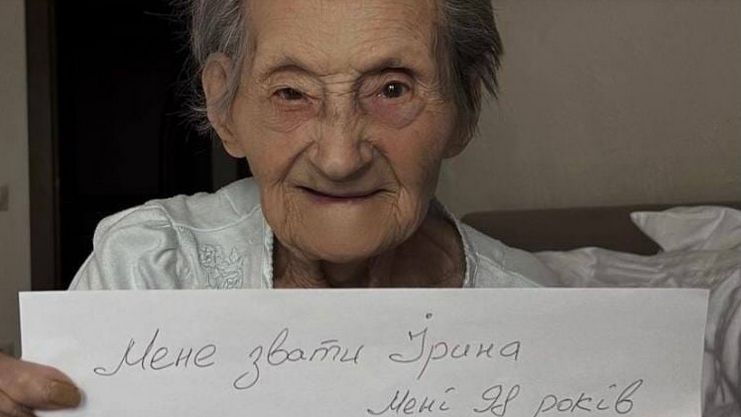 Мене звати Ірина
мені 98 років